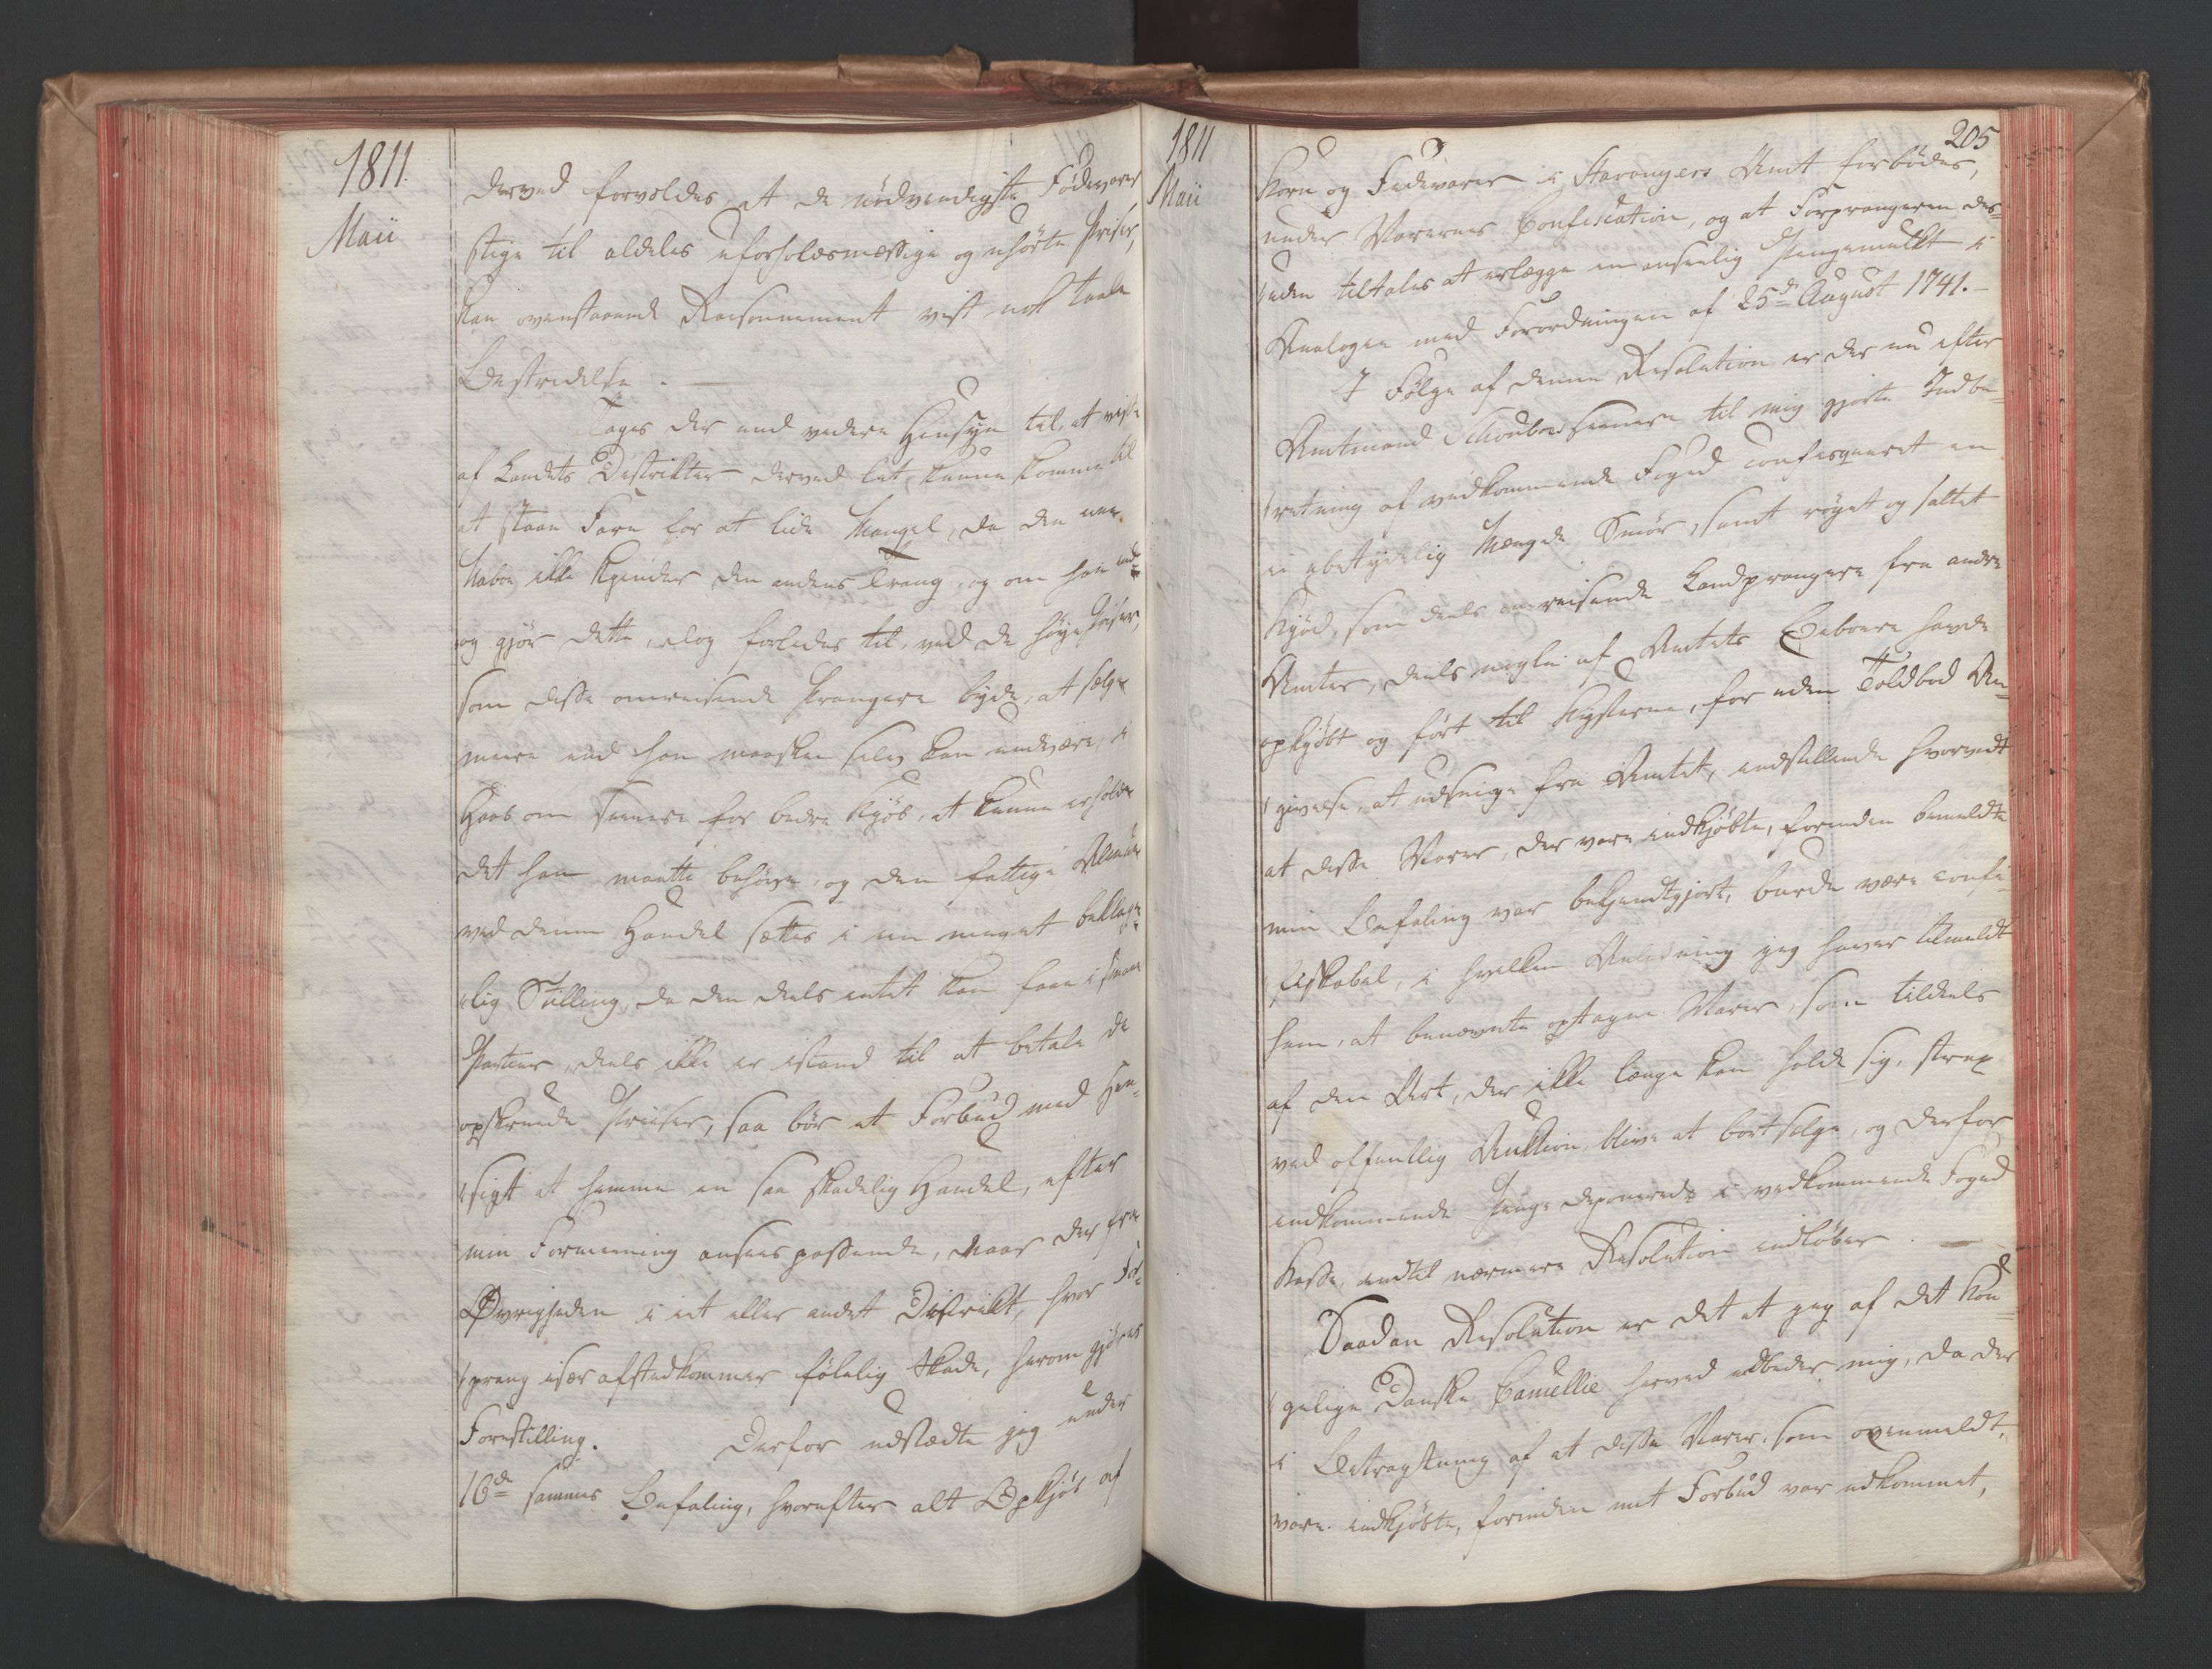 1811.
Maii
derved forvoldes at de nødvendigste Fødevarer
stige til aldeles uforholdsmæssige og uhørte Priser,
kan ovenstaaende Raisonnement vist nok taale
Bestridelse. —
Tages der end videre Hensyn til, at visse
af Landets Distrikter derved let kunne komme til
at staae Fare for at lide Mangel, da den ene
Naboe ikke kjender den andens Trang, og om han end
og gjør dette, dog forledes til, ved de høye Priser,
som disse omreisende Prangere byde, at sælge
meere end han maaskee selv kan undvære, i
Haab om senere for bedre Kjøb, at kunne erholde
det han maatte behøve, og den fattige Almue
ved denne Handel sættes i en meget beklage-
lig Stilling, da den deels intet kan faae i smaae
Partier, deels ikke er istand til at betale de
opskruede Priiser, saa bør et Forbud med Hen-
sigt at hemme en saa skadelig Handel, efter
min Formeening ansees passende, naar der fra
Øvrigheden i eet eller andet Distrikt, hvor For-
prang især afstedkommer følelig Skade, herom gjøres
Forestilling. Derfor udstædte jeg under
16de sammes Befaling, hvorefter alt Opkjøb af
205
1811
Maii
Korn og Fedevarer i Stavangers Amt forbødes,
under Varernes Confiscation, og at Forprangeren des-
uden tiltales at erlægge en anseelig Pengemulkt i
Analogie med Forordningen af 25de August 1741. —
I Følge af denne Resolution er der nu efter
Amtmand Schoubos senere til mig gjorte Indbe-
retning af vedkommende Foged confisqueret en
ei ubetydelig Mængde Smør, samt røget og saltet
Kjød, som deels omreisende Landprangere fra andre
Amter, deels nogle af Amtets Beboere havde
opkjøbt og ført til Kysterne, for uden Toldbod An-
givelse, at udsnige fra Amtet, indstillende hvorvidt
at disse Varer, der vare indkjøbte, forinden bemeldte
min Befaling var bekjendtgjort, burde være confi-
skabel, i hvilken Anledning jeg haver tilmeldt
ham, at benævnte optagne Varer, som tildeels
af den Art, der ikke længe kan holde sig, strax
ved offentlig Auktion blive at bortsælge, og derfor
indkommende Penge deponereds i vedkommende Foged
Kasse, indtil nærmere Resolution indløber. —
Saadan Resolution er det at jeg af det Kon-
gelige Danske Cancellie herved udbeder mig, da der
i Betragtning af at disse Varer, som ovenmeldt,
vare indkjøbte, forinden mit Forbud var udkommet,